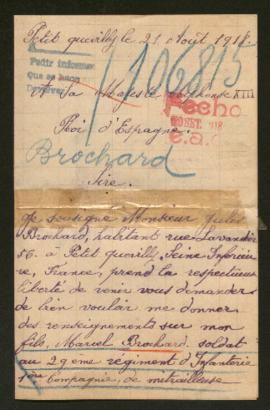 Petit quevilly le 21 Août 1918.
Pedir informes
Que se hacen
106815
A Sa Majesté Alphonse XIII
Fecho
Roi d'Espagne.
Brochard
Sire.
Je sousigné Monsieur Jules
Brochard, habitant rue Lavandier
56. à Petit quevilly, Seine Inférieu
re, France, prend la respectueuse
liberté de venir vous demander
de bien vouloir me donner
des renseignements sur mon
fils, Marcel Brochard. soldat
au 29eme régiment d'Infanterie
1ere Compagnie, de mitrailleuse